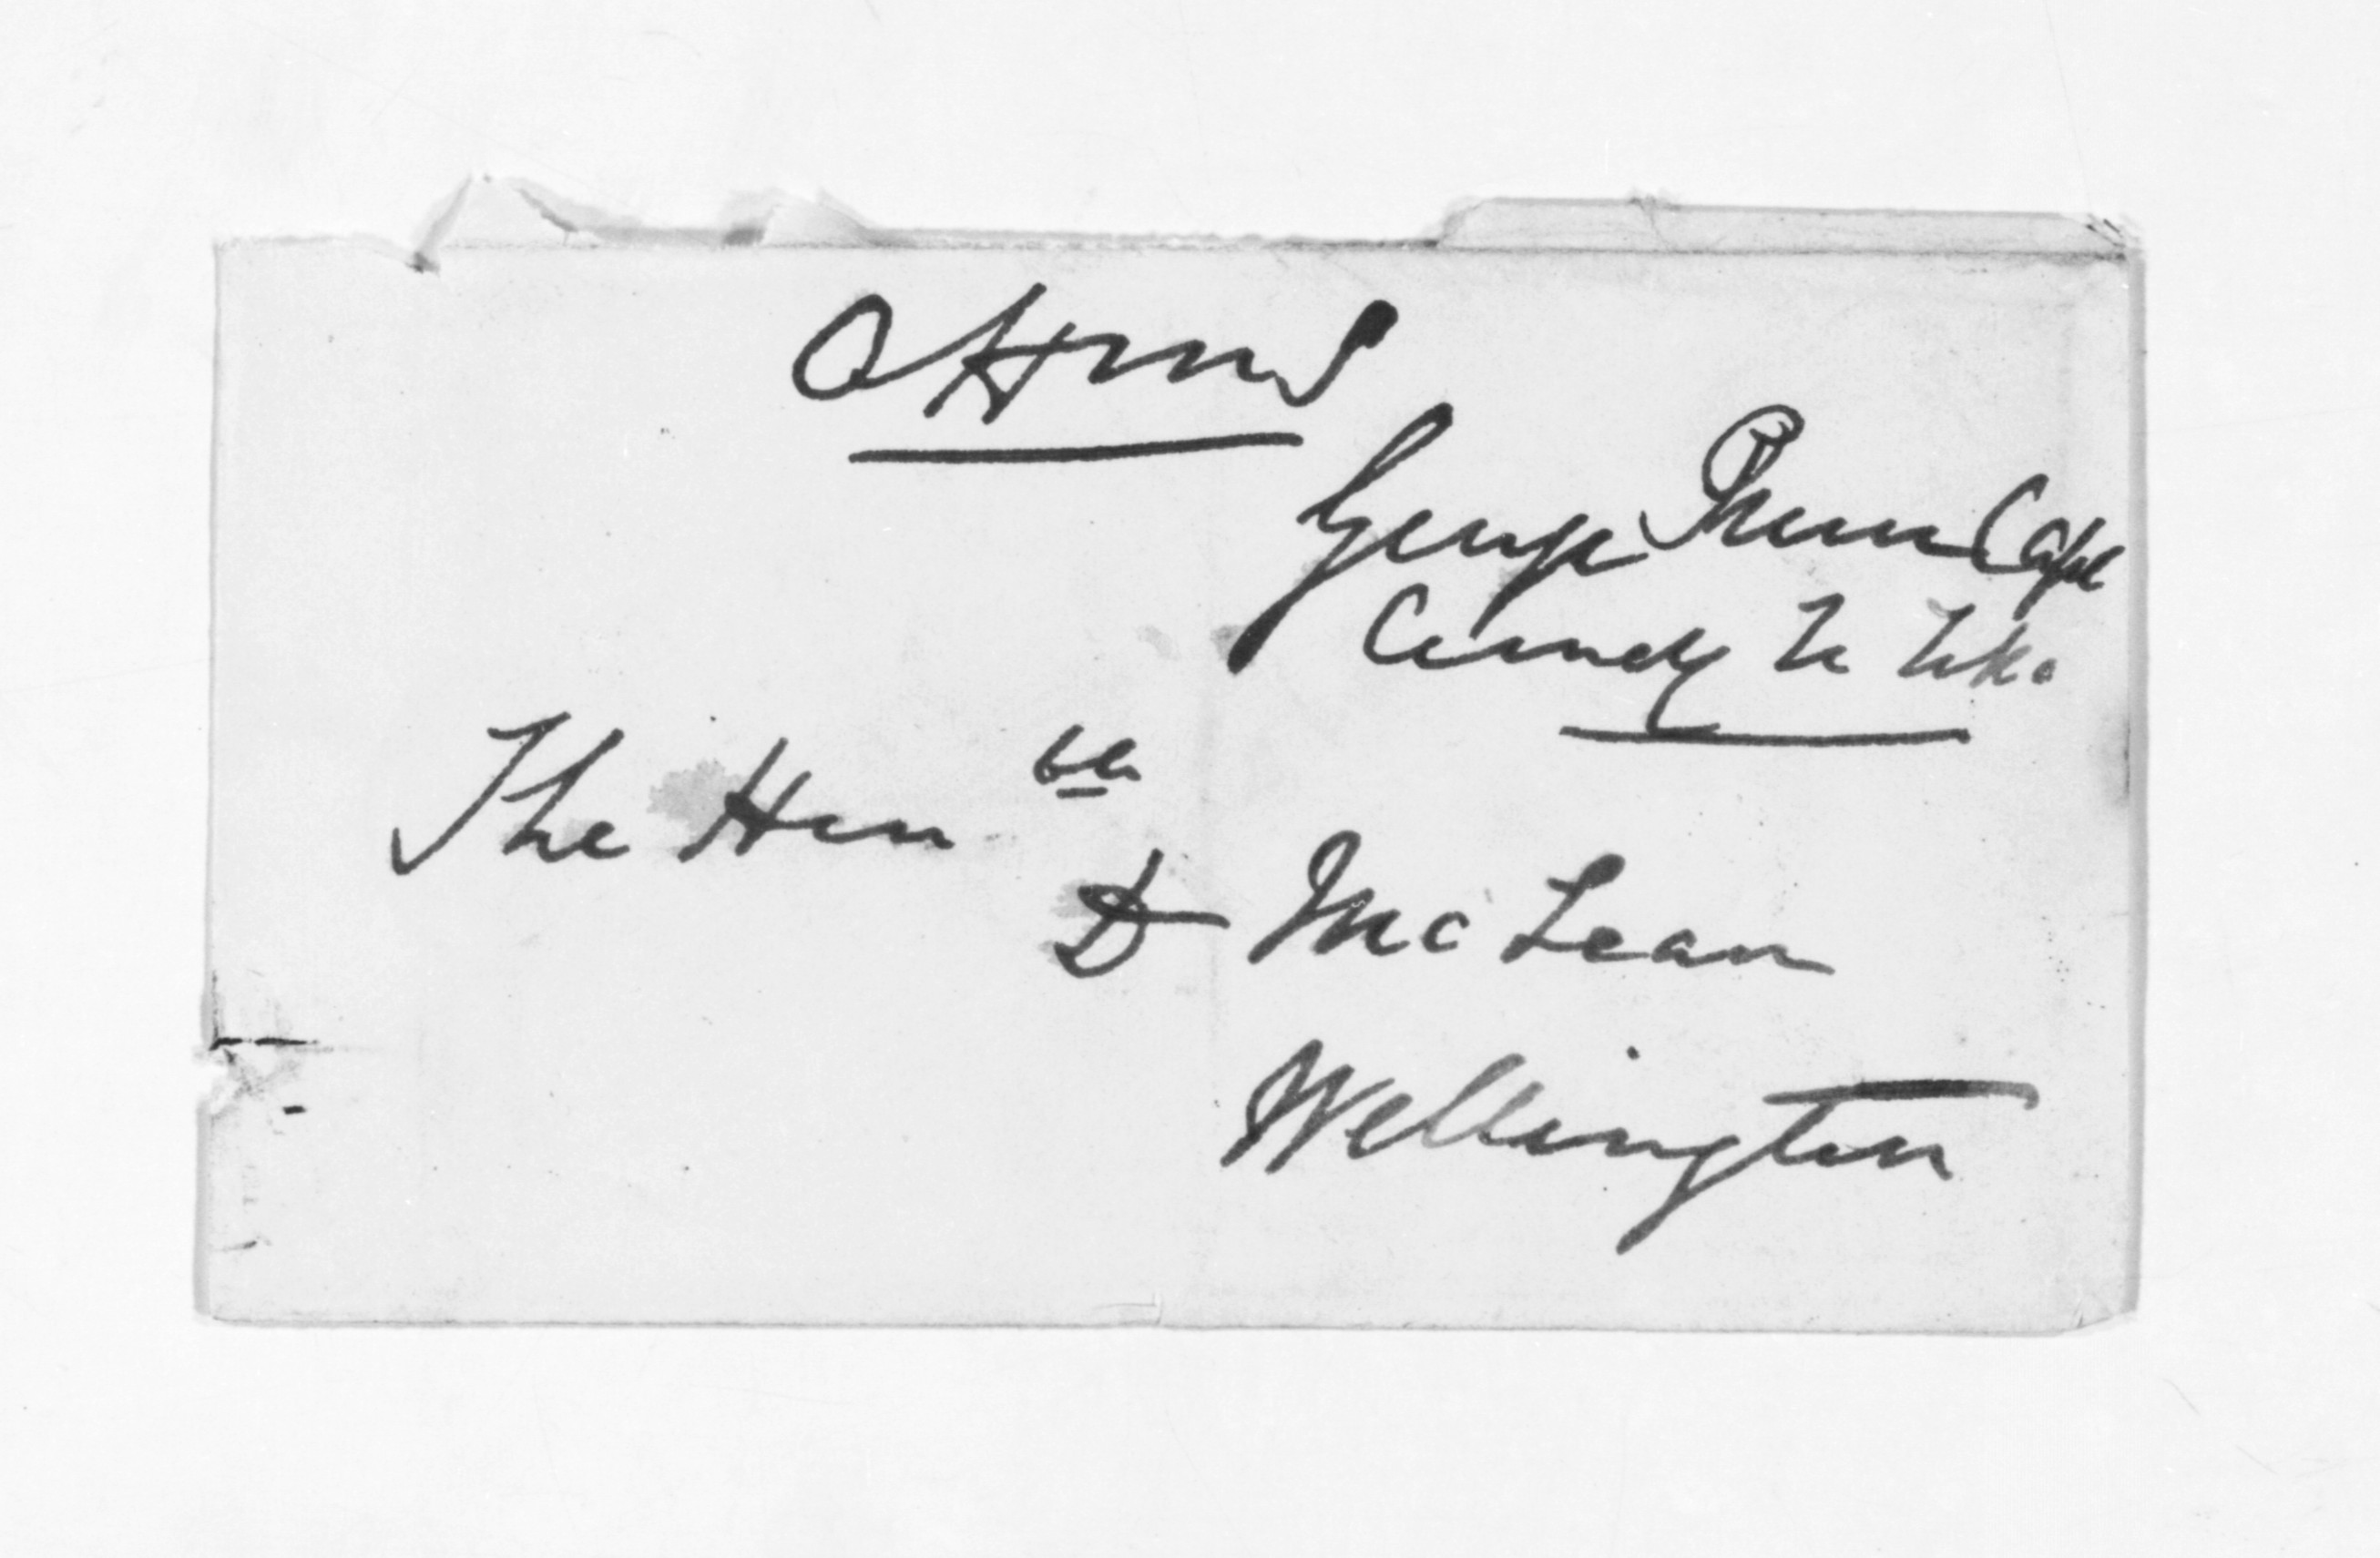 OHMS
George Preece Capt
Comdg Te Teko
The Hon ble
D McLean
Wellington